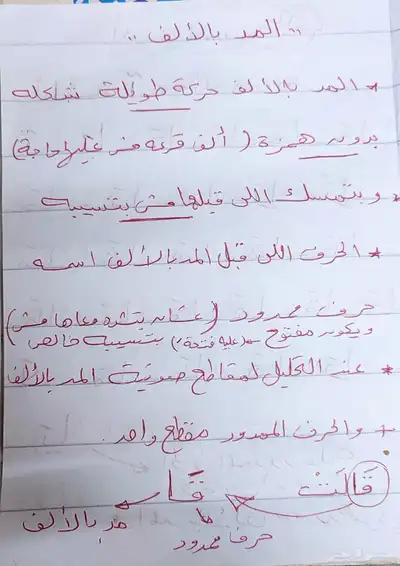 " المد بالألف "
* المد بالألف حركة طويلة شكله
بدون همزة ( ألف قرعه مش عليها حاجة)
* وبتمسك اللى قبلها مش بتسيبه
* الحرف اللى قبل المد بالألف اسمه
حرف ممدود (عشان بتشده معاها مش
بتسيبه خالص)
ويكون مفتوح (عليه فتحة َ)
* عند التحليل لمقاطع صوتية المد بالألف
والحرف الممدود مقطع واحد.
قَالَتْ قَا
مد بالألف
حرف ممدود